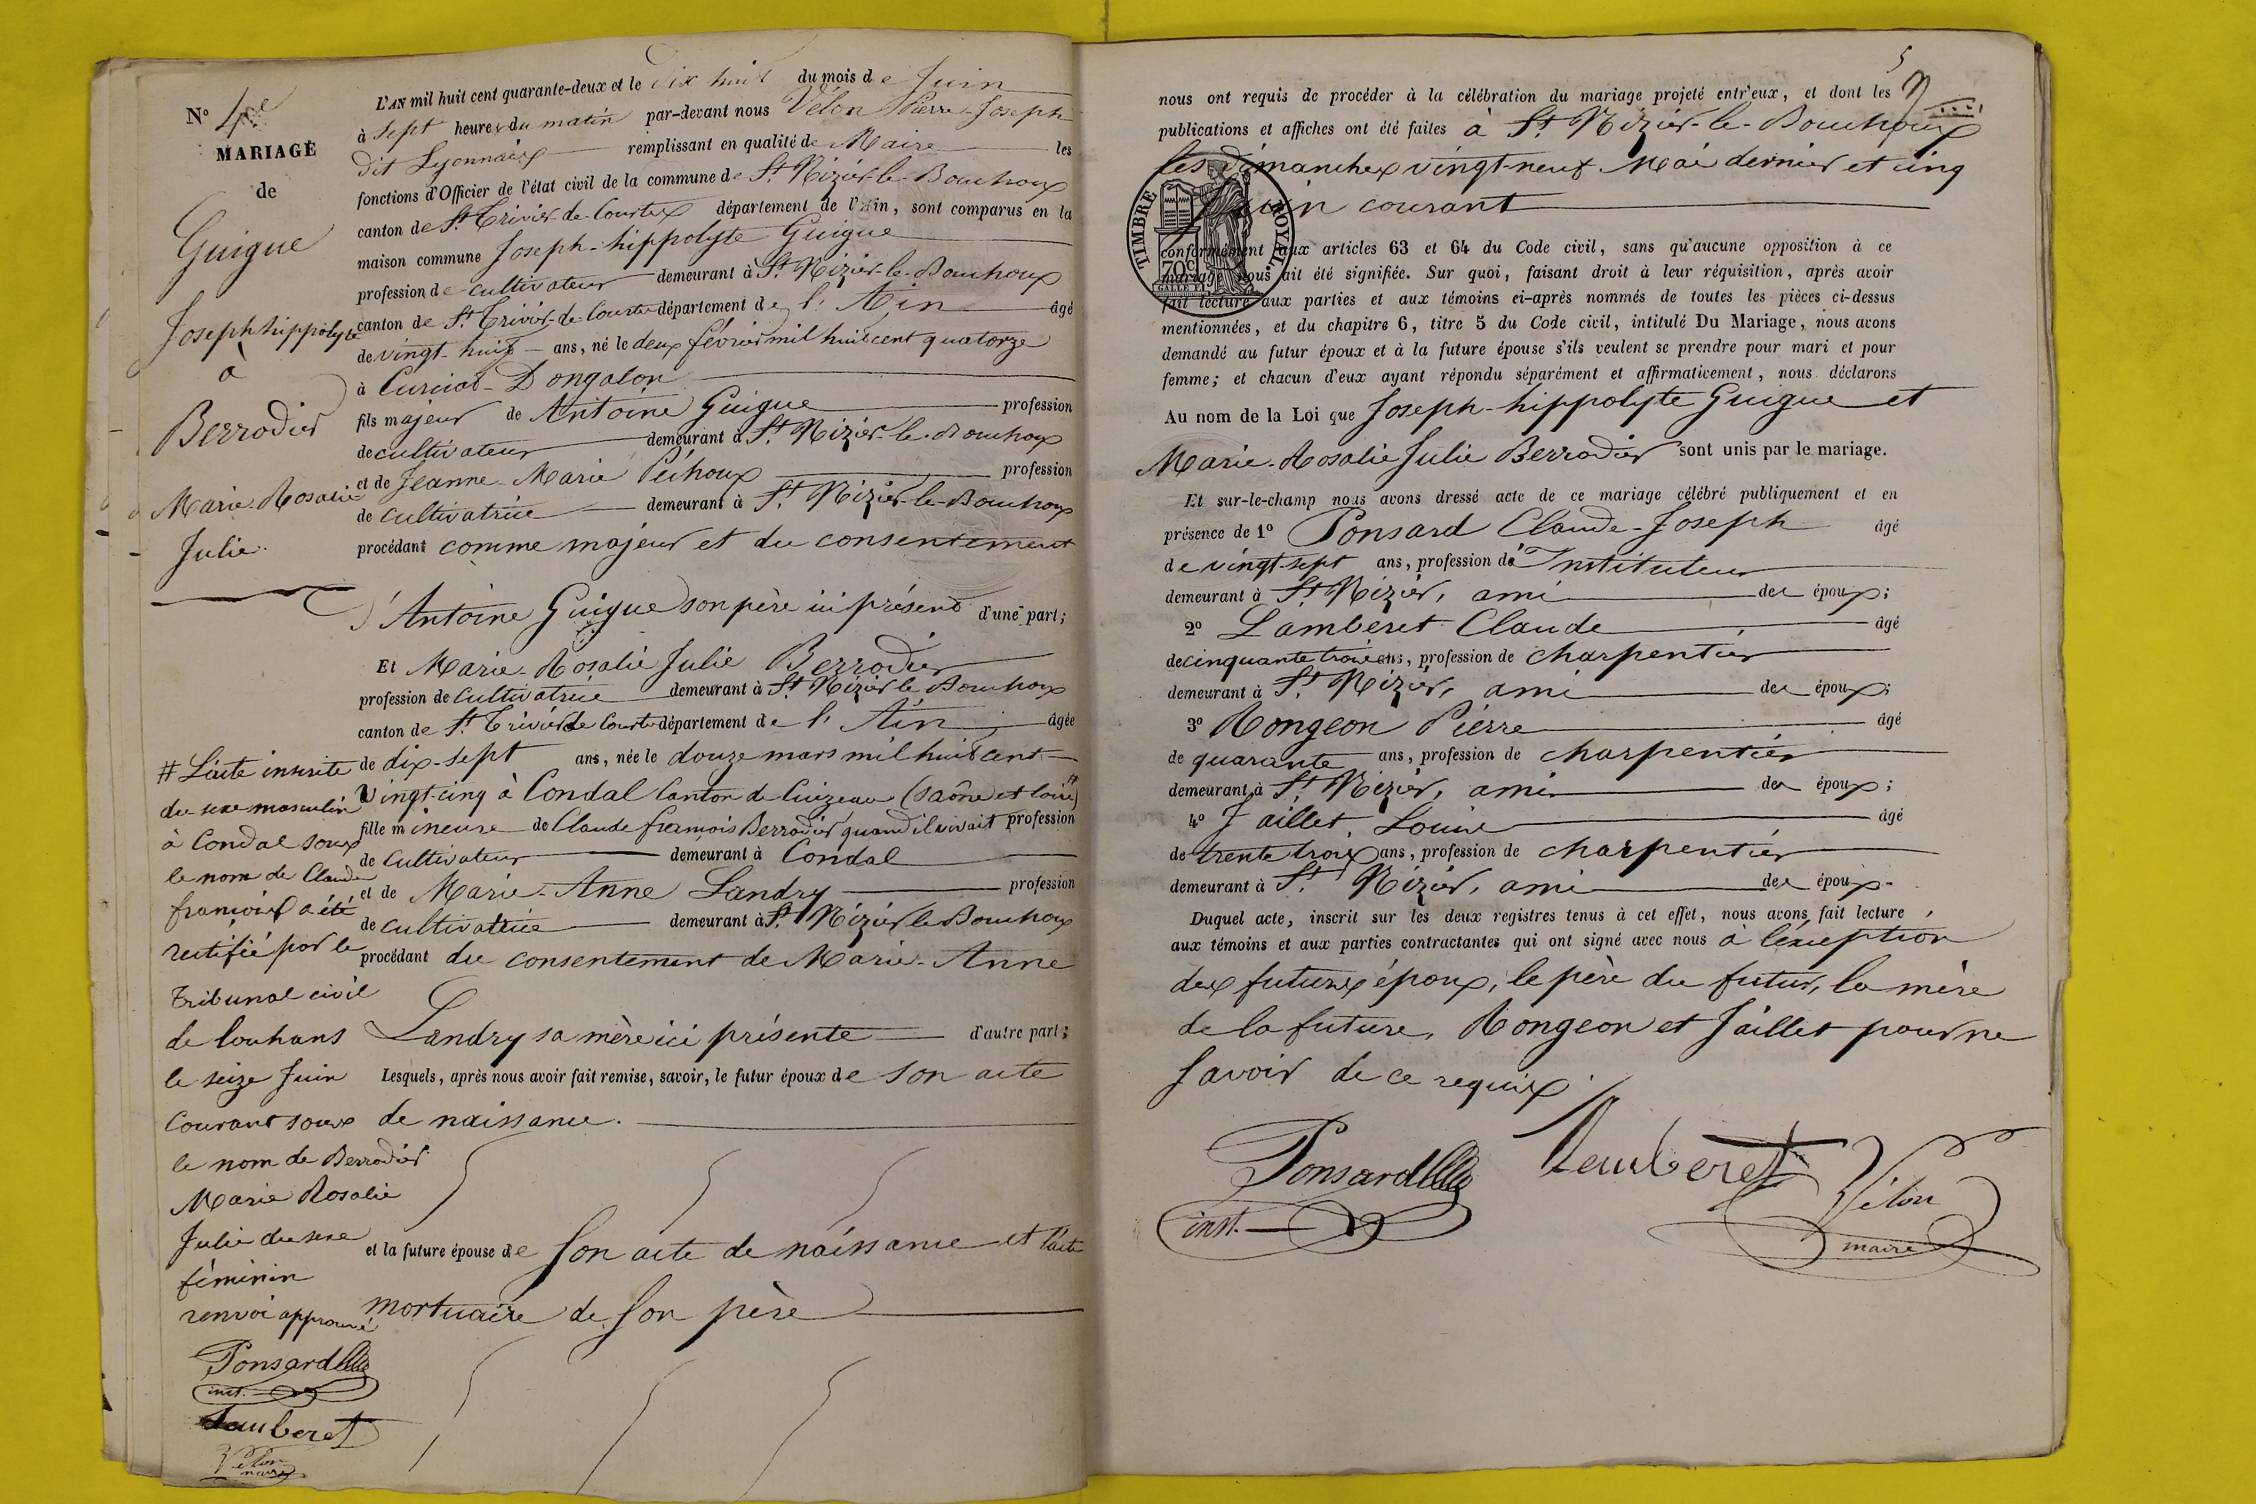 N° 4e
MARIAGE
de
Guigue
Joseph hippolyte
à
Berrodier
Marie-Rosalie
Julie.
L'AN mil huit cent quarante-deux et le dix huit du mois de Juin
à sept heures du matin par-devant nous Vélon Pierre-Joseph
dit Lyonnais remplissant en qualité de Maire les
fonctions d'Officier de l'état civil de la commune de St. Nizier-le-Bouchoux
canton de St. Trivier-de-Courtes département de l'Ain, sont comparus en la
maison commune Joseph-hippolyte Guigue
profession de cultivateur demeurant à St. Nizier-le-Bouchoux
canton de St. Trivier-de-Courtes département de l'Ain âgé
de vingt-huit ans, né le deux février mil huit cent quatorze
à Curciat-Dongalon
fils majeur de Antoine Guigue profession
de cultivateur demeurant à St. Nizier-le-Bouchoux
et de Jeanne-Marie Péchoux profession
de cultivatrice demeurant à St. Nizier-le-Bouchoux
procédant comme majeur et du consentement
d'Antoine Guigue son père ici présent d'une part;
Et Marie-Rosalie Julie Berrodier
profession de cultivatrice demeurant à St. Nizier le Bouchoux
canton de St. Trivier de Courtes département de l'Ain âgée
de dix-sept ans, née le douze mars mil huit cent
vingt-cinq à Condal Canton de Cuizeau (Saône et Loire) #
fille mineure de Claude françois Berrodier quand il vivait profession
de cultivateur demeurant à Condal
et de Marie-Anne Landry profession
de cultivatrice demeurant à St. Nizier le Bouchoux
procédant du consentement de Marie-Anne
Landry sa mère ici présente d'autre part;
Lesquels, après nous avoir fait remise, savoir, le futur époux de son acte
de naissance.
et la future épouse de son acte de naissance et l'acte
mortuaire de son père
# L'acte inscrite
du sexe masculin
à Condal sous
le nom de Claude
françois a été
rectifié par le
tribunal civil
de Louhans
le seize Juin
courant sous
le nom de Berrodier
Marie Rosalie
Julie du sexe
féminin
renvoi approuvé
Ponsard
inst.
Lamberet
Vélon
maire
5
nous ont requis de procéder à la célébration du mariage projeté entr'eux, et dont les
publications et affiches ont été faites à St. Nizier-le-Bouchoux
les dimanches vingt-neuf Mai dernier et cinq
Juin courant
TIMBRE ROYAL.
70c
conformément aux articles 63 et 64 du Code civil, sans qu'aucune opposition à ce
mariage nous ait été signifiée. Sur quoi, faisant droit à leur réquisition, après avoir
fait lecture aux parties et aux témoins ci-après nommés de toutes les pièces ci-dessus
mentionnées, et du chapitre 6, titre 5 du Code civil, intitulé Du Mariage, nous avons
demandé au futur époux et à la future épouse s'ils veulent se prendre pour mari et pour
femme; et chacun d'eux ayant répondu séparément et affirmativement, nous déclarons
Au nom de la Loi que Joseph-hippolyte Guigue et
Marie-Rosalie Julie Berrodier sont unis par le mariage.
Et sur-le-champ nous avons dressé acte de ce mariage célébré publiquement et en
présence de 1° Ponsard Claude-Joseph âgé
de vingt-sept ans, profession d'Instituteur
demeurant à St. Nizier, ami des époux;
2° Lamberet Claude âgé
de cinquante trois ans, profession de charpentier
demeurant à St. Nizier, ami des époux;
3° Rongeon Pierre âgé
de quarante ans, profession de charpentier
demeurant à St. Nizier, ami des époux;
4° Jaillet Louis âgé
de trente trois ans, profession de charpentier
demeurant à St. Nizier, ami des époux.
Duquel acte, inscrit sur les deux registres tenus à cet effet, nous avons fait lecture
aux témoins et aux parties contractantes qui ont signé avec nous à l'éxception
des futurs époux, le père du futur, la mère
de la future, Rongeon et Jaillet pour ne
savoir de ce requis.
Ponsard
inst.
Lamberet
Vélon
maire